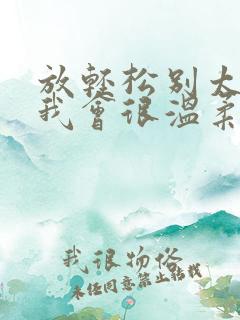 放轻松别太
我会很温柔
我很物俗
未经同意禁止转载